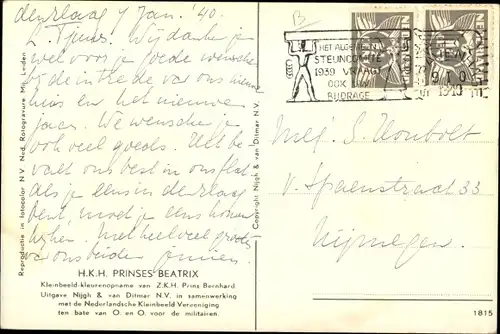 den Haag 7 Jan. '40.
L. Wij danken je
wel voor je goede wenschen
bij de intrede van ons nieuwe
huis en het nieuwe
jaar. We wenschen je
ook veel goeds. Het be-
valt ons best in ons flat.
als je eens in den Haag
bent, moet je eens komen
kijken. Met heel veel groeten
van ons beiden
H.K.H. PRINSES BEATRIX
Kleinbeeld-kleurenopname van Z.K.H. Prins Bernhard
Uitgave Nijgh & van Ditmar N.V. in samenwerking
met de Nederlandsche Kleinbeeld Vereeniging
ten bate van O. en O. voor de militairen.
Reproductie in fotocolor N.V. Ned. Rotogravure Mij. Leiden
Copyright Nijgh & van Ditmar N.V.
B
HET ALGEMEEN
STEUNCOMITÉ
1939 VRAAGT
OOK UW
BIJDRAGE
NEDERLAND
NEDERLAND
1940
Mej. S. Houbolt
v. Spaenstraat 33
Nijmegen.
1815